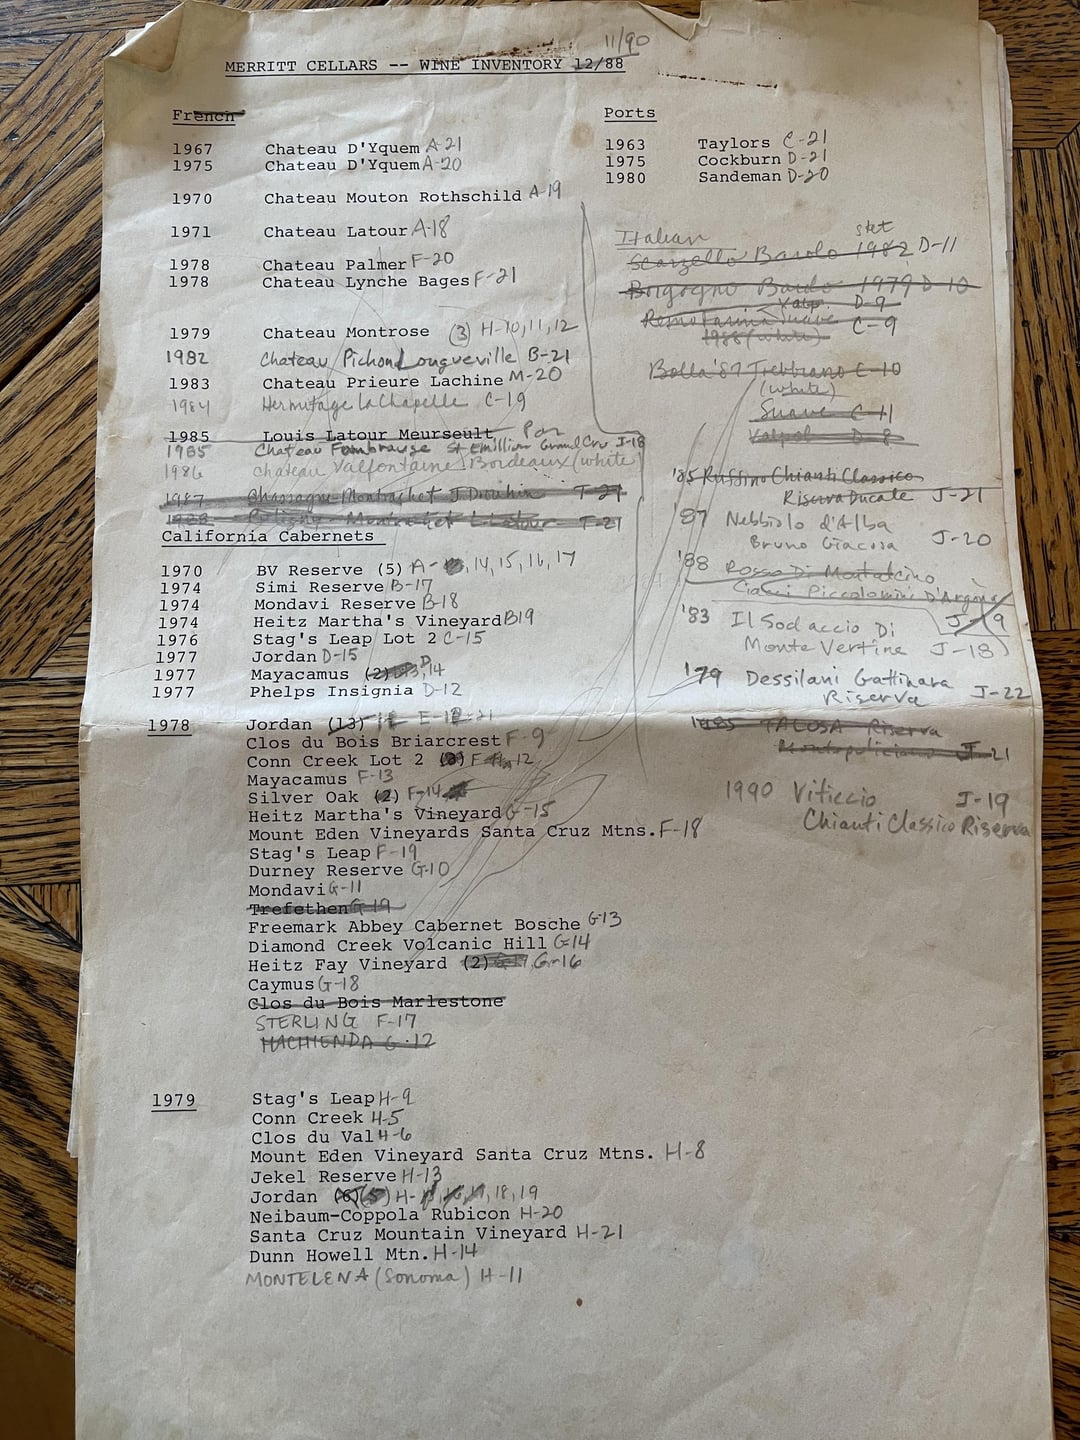 11/90
MERRITT CELLARS -- WINE INVENTORY 12/88
French
1967 Chateau D'Yquem A-21
1975 Chateau D'Yquem A-20
1970 Chateau Mouton Rothschild A-19
1971 Chateau Latour A-18
1978 Chateau Palmer F-20
1978 Chateau Lynche Bages F-21
1979 Chateau Montrose (3) H-10,11,12
1982 Chateau Pichon Longueville B-21
1983 Chateau Prieure Lachine M-20
1984 Hermitage LaChapelle C-19
1985 Louis Latour Meurseult
1985 Chateau Fombrauge St Emillion Grand Cru J-18
1986 Chateau Valfontaine Bordeaux (white)
1987 Chassagne-Montrachet J. Drouhin T-21
1988 Puligny-Montrachet L. Latour T-21
California Cabernets
1970 BV Reserve (5) A- ,14,15,16,17
1974 Simi Reserve B-17
1974 Mondavi Reserve B-18
1974 Heitz Martha's Vineyard B19
1976 Stag's Leap Lot 2 C-15
1977 Jordan D-15
1977 Mayacamus (2) D,14
1977 Phelps Insignia D-12
1978 Jordan (13)
Clos du Bois Briarcrest F-9
Conn Creek Lot 2 F- 12
Mayacamus F-13
Silver Oak (2) F-14
Heitz Martha's Vineyard G-15
Mount Eden Vineyards Santa Cruz Mtns. F-18
Stag's Leap F-19
Durney Reserve G-10
Mondavi G-11
Trefethen G-19
Freemark Abbey Cabernet Bosche G-13
Diamond Creek Volcanic Hill G-14
Heitz Fay Vineyard (2) G-16
Caymus G-18
Clos du Bois Marlestone
STERLING F-17
HACHIENDA G-12
1979 Stag's Leap H-9
Conn Creek H-5
Clos du Val H-6
Mount Eden Vineyard Santa Cruz Mtns. H-8
Jekel Reserve H-13
Jordan (5) H- ,18,19
Neibaum-Coppola Rubicon H-20
Santa Cruz Mountain Vineyard H-21
Dunn Howell Mtn. H-14
MONTELENA (Sonoma) H-11
Ports
1963 Taylors C-21
1975 Cockburn D-21
1980 Sandeman D-20
Italian
stet
Scarzello Barolo 1982 D-11
Borgogno Barolo 1979 D-10
Valp. D-9
Suave C-9
1988 (white)
Bolla '87 Trebbiano C-10
(white)
Suave C-11
Valpol D-8
'85 Ruffino Chianti Classico
Riserva Ducale J-21
'87 Nebbiolo d'Alba
Bruno Giacosa J-20
'88 Rosso Di Montalcino
Ciacci Piccolomini D'Aragona
J-19
'83 Il Sodaccio Di
Monte Vertine J-18
'79 Dessilani Gattinara
Riserva J-22
1985 TALOSA Riserva
Montepulciano J-21
1990 Viticcio J-19
Chianti Classico Riserva